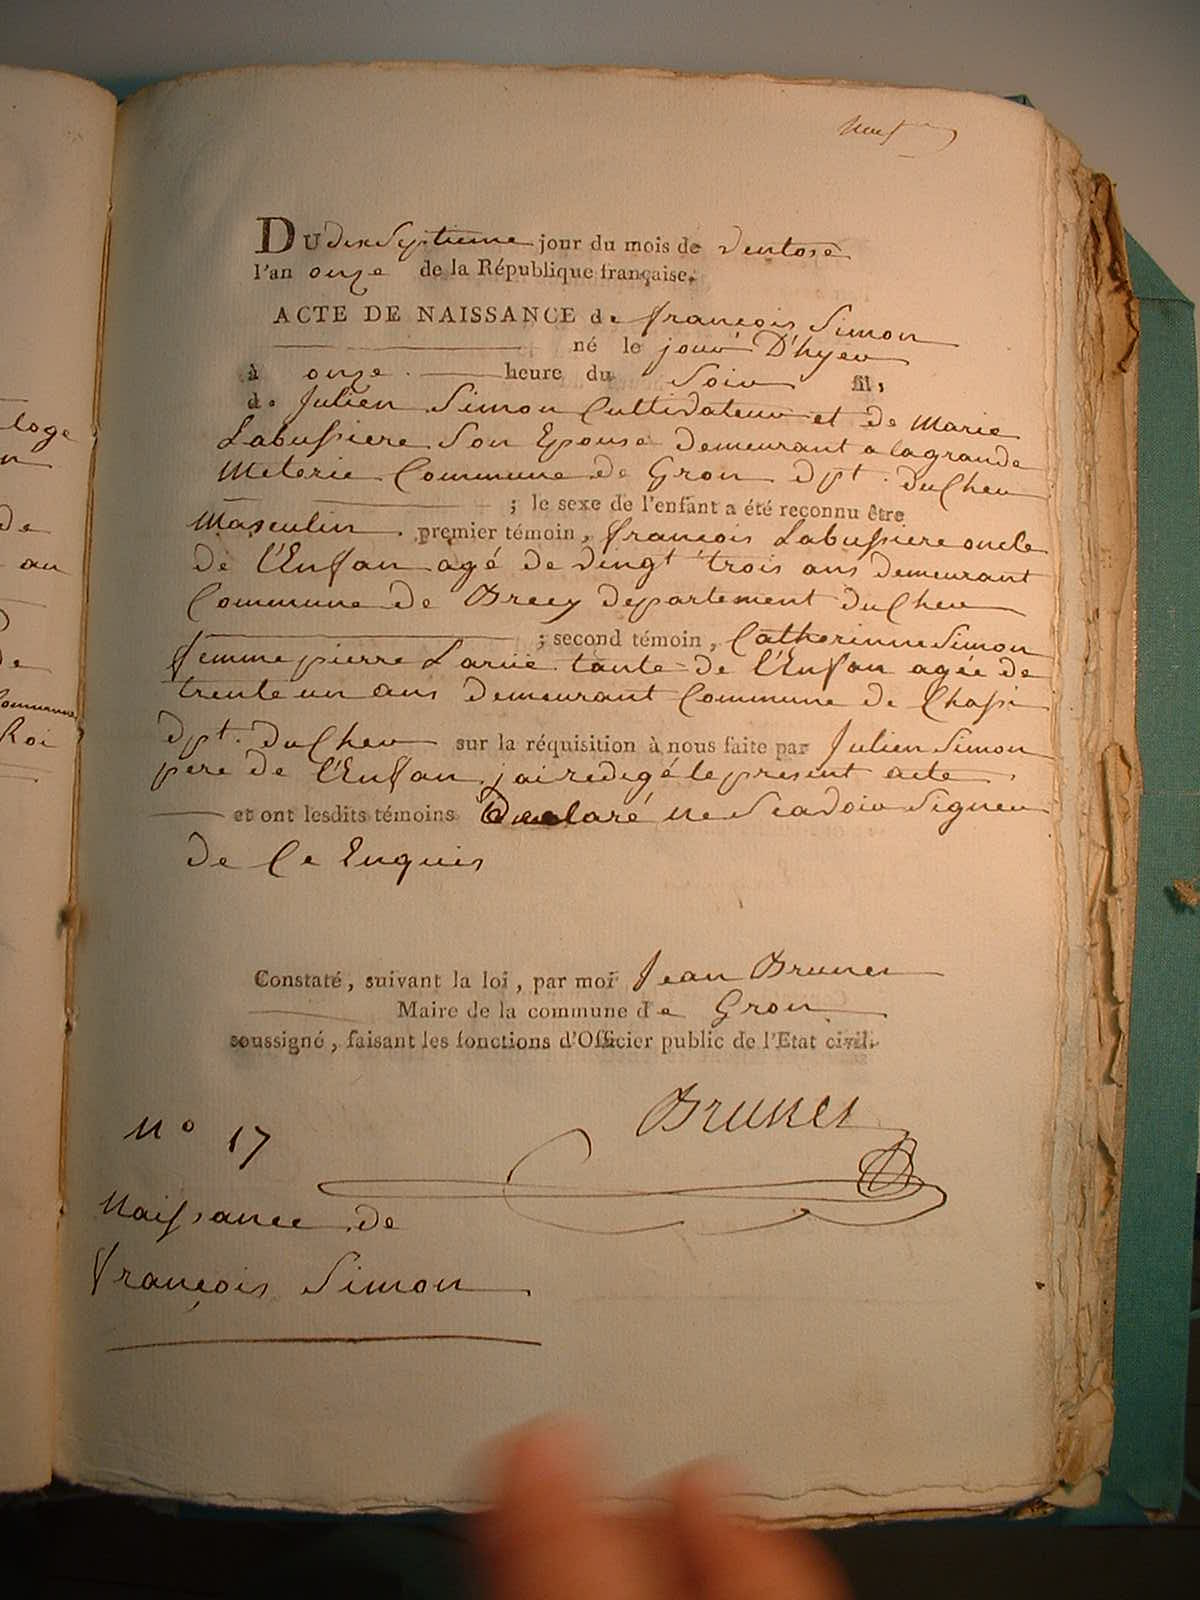 neuf
DU dix Septieme jour du mois de Ventose
l'an onze de la République française.
ACTE DE NAISSANCE de françois Simon
né le jour D'hyer
à onze heure du Soir fils
de Julien Simon Cultivateur et de Marie
Labussiere Son Epouse demeurant a lagrande
Meterie Commune de Gron dpt. du Cher
; le sexe de l'enfant a été reconnu être
Masculin premier témoin, françois Labussiere oncle
de l'Enfan agé de vingt trois ans demeurant
Commune de Brecy departement du Cher
; second témoin, Catherinne Simon
femme pierre Larue tante de l'Enfan agée de
trente un ans demeurant Commune de Chassi
dpt. du Cher sur la réquisition à nous faite par Julien Simon
pere de l'Enfan jai redigé le present acte
et ont lesdits témoins Declaré ne Scavoir Signer
de Ce Enquis
Constaté, suivant la loi, par moi Jean Brunet
Maire de la commune de Gron
soussigné, faisant les fonctions d'Officier public de l'Etat civil.
Brunet
No 17
Naissance de
françois Simon
loge
n
de
au
de
Commune
Roi